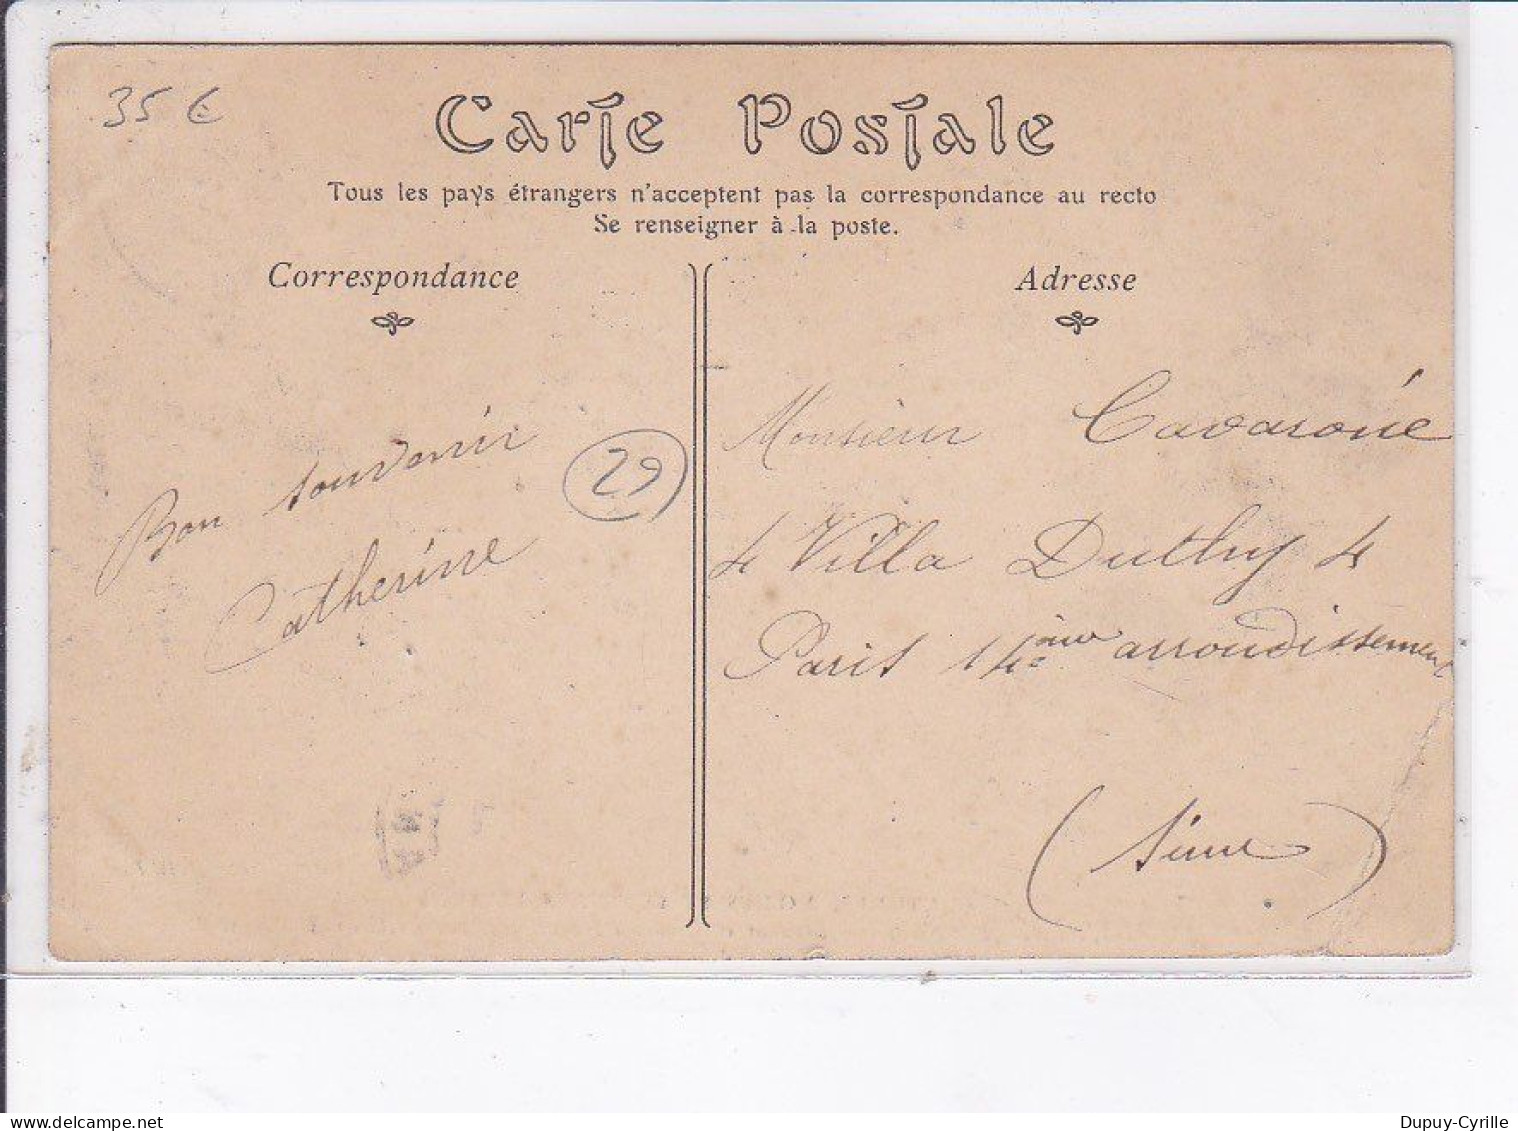 35 €
Carte Postale
Tous les pays étrangers n'acceptent pas la correspondance au recto
Se renseigner à la poste.
Correspondance
Adresse
Bon souvenir
Catherine
29
Monsieur Cavaroné
4 Villa Duthy 4
Paris 14ème arrondissement
(Seine)
www.delcampe.net
Dupuy-Cyrille